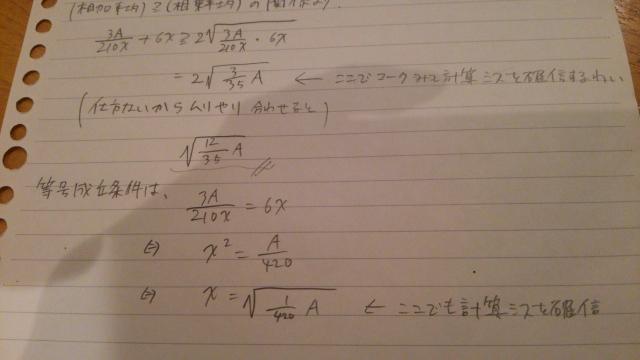 (相加平均)≧(相乗平均)の関係より.
3A/210x + 6x ≧ 2√(3A/210x ・ 6x)
= 2√(3/35 A) ← ここでマークみて計算ミスを確信するわい
(仕方ないからムリやり合わせると)
√(12/35 A)
等号成立条件は、
3A/210x = 6x
⇔ x² = A/420
⇔ x = √(1/420 A) ← ここでも計算ミスを確信